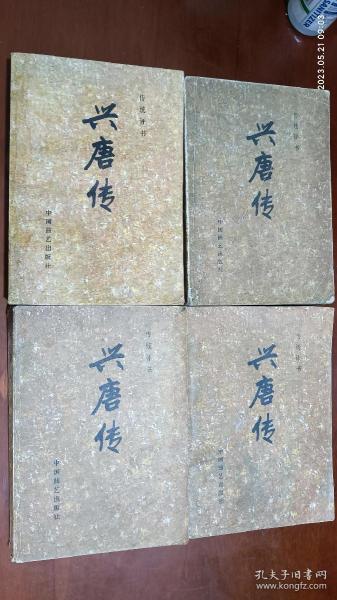 SANITIZER
2023.05.21 09:03
传统评书
兴唐传
中国曲艺出版社
传统评书
兴唐传
中国曲艺出版社
传统评书
兴唐传
中国曲艺出版社
传统评书
兴唐传
中国曲艺出版社
孔夫子旧书网
www.kongfz.com